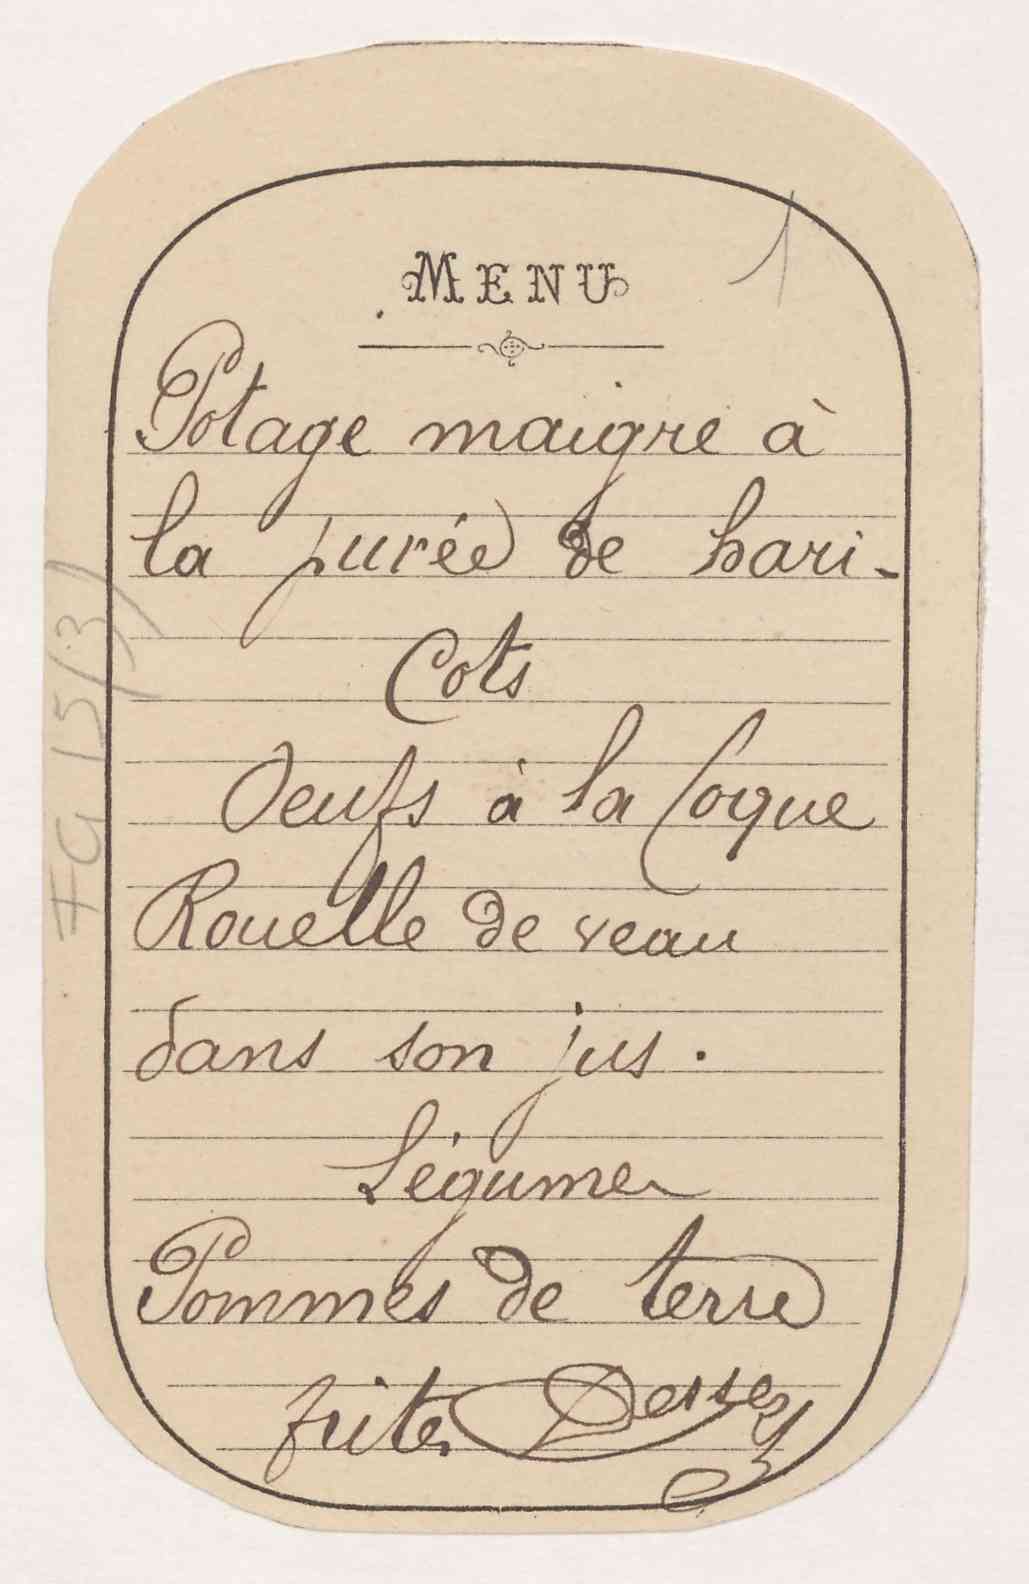 MENU
1
Potage maigre à
la purée de hari-
Cots
Oeufs à la Coque
Rouelle de veau
dans son jus.
Légumes
Pommes de terre
frites Dessert
FG 15(3)